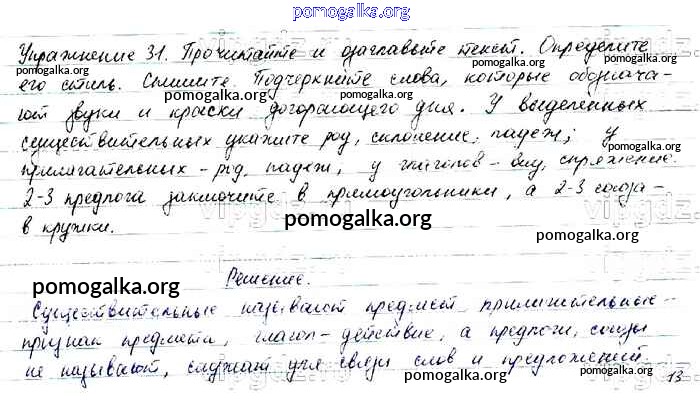 pomogalka.org
Упражнение 31. Прочитайте и озаглавьте текст. Определите
его стиль. Спишите. Подчеркните слова, которые обознача-
pomogalka.org pomogalka.org pomogalka.org
ют звуки и краски догорающего дня. У выделенных
существительных укажите род, склонение, падеж; у
pomogalka.org pomogalka.org pomogalka.org
прилагательных - род, падеж, у глаголов - вид, спряжение.
2-3 предлога заключите в прямоугольники, а 2-3 союза -
vipgdz vipgdz.
pomogalka.org
в кружки.
pomogalka.org
pomogalka.org
Решение.
pomogalka.org
Существительные называют предмет, прилагательные -
признак предмета, глагол - действие, а предлоги, союзы
pomogalka.org pomogalka.org
не называют, служат для связи слов и предложений.
pomogalka.org
13